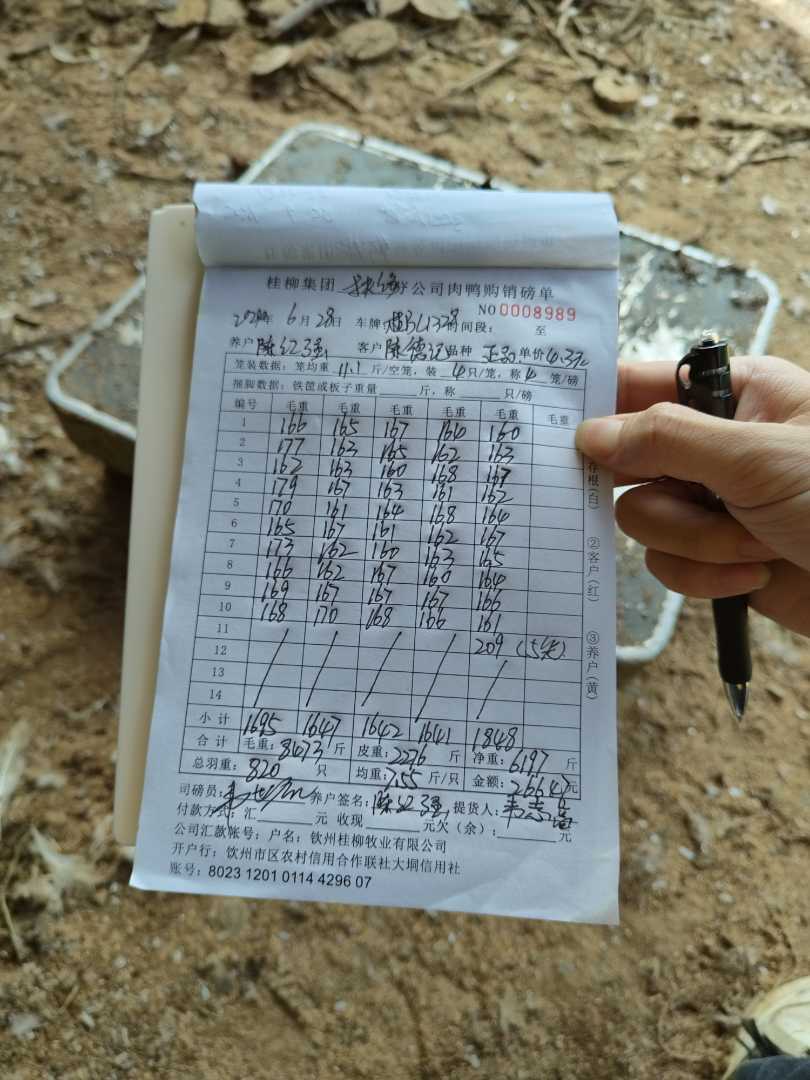 桂柳集团 分公司肉鸭购销磅单
NO 0008989
年 6 月 28 日 车牌 时间段： 至
养户 陈红强 客户 陈德记 品种 正品 单价 4.3元
笼装数据：笼均重 11.1 斤/空笼，装 4 只/笼，称 4 笼/磅
捆脚数据：铁筐或板子重量 斤，称 只/磅
编号 毛重 毛重 毛重 毛重 毛重 毛重
1 166 165 167 160 160
2 177 163 165 162 163
3 162 163 160 168 167
4 179 167 163 161 162
5 170 161 164 168 164
6 165 167 161 162 167
7 173 162 160 163 165
8 166 162 167 160 164
9 169 167 167 167 166
10 168 170 168 166 161
11 209 (5只)
12
13
14
小计 1695 1647 1642 1641 1848
合计 毛重：8473 斤 皮重：2276 斤 净重：6197 斤
总羽重：820 只 均重：7.55 斤/只 金额：26647 元
司磅员： 养户签名：陈红强 提货人：韦志
付款方式：汇 元 收现 元欠（余）： 元
公司汇款帐号：户名：钦州桂柳牧业有限公司
开户行：钦州市区农村信用合作联社大垌信用社
账号：8023 1201 0114 4296 07
存根（白）
②客户（红）
③养户（黄）